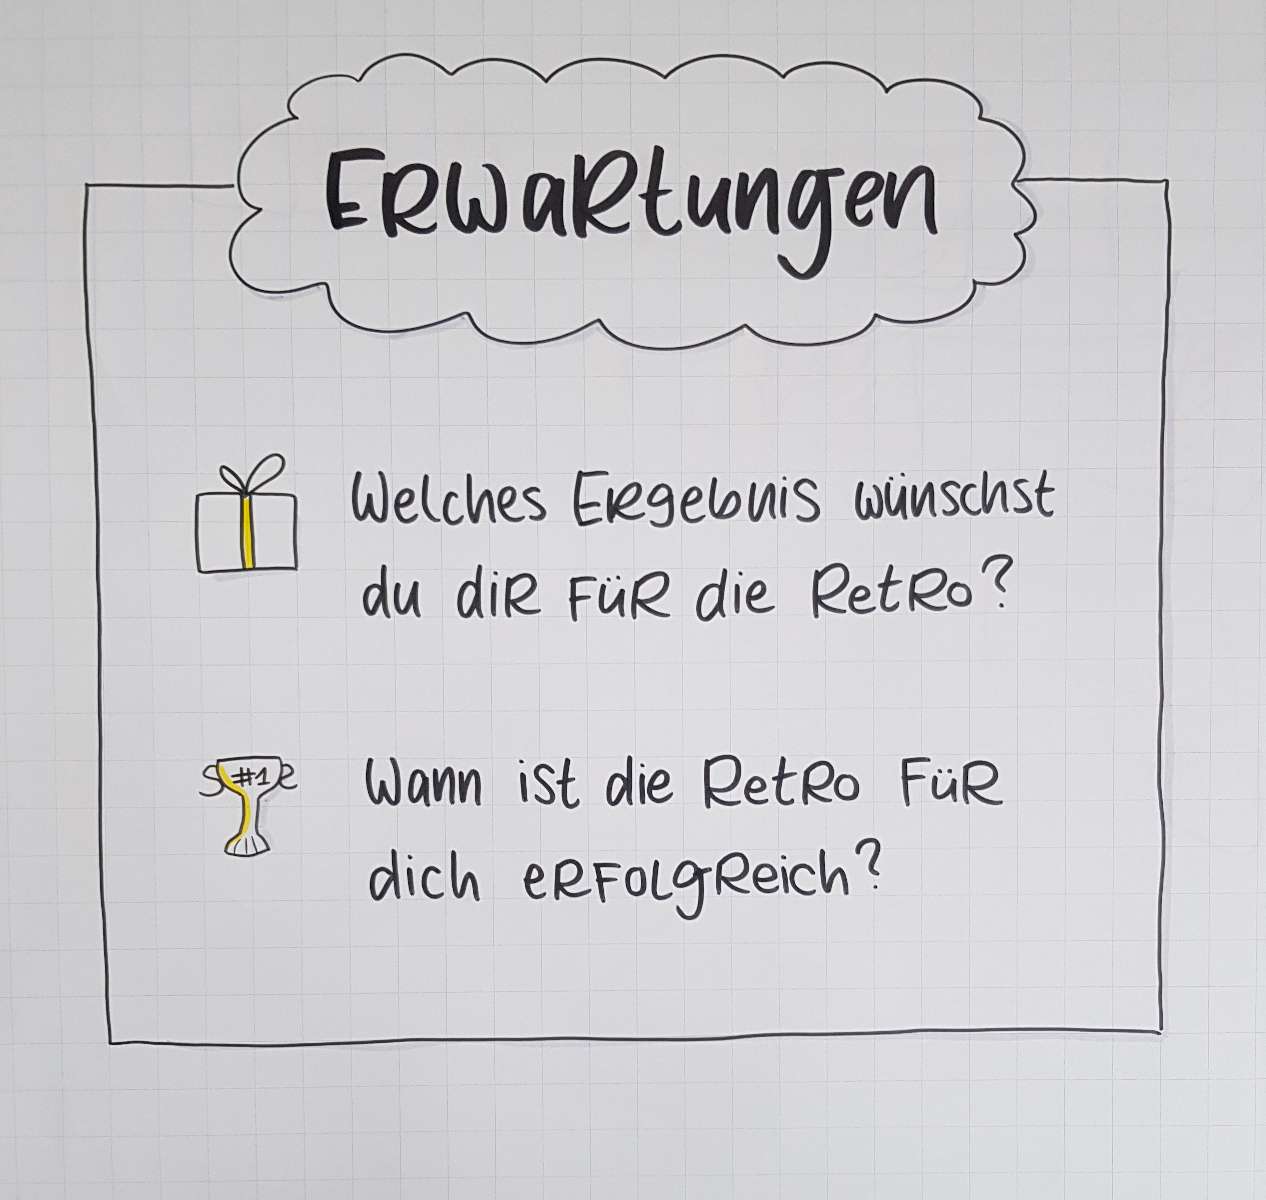 Erwartungen
Welches Ergebnis wünschst
du dir für die Retro?
#1
Wann ist die Retro für
dich erfolgreich?